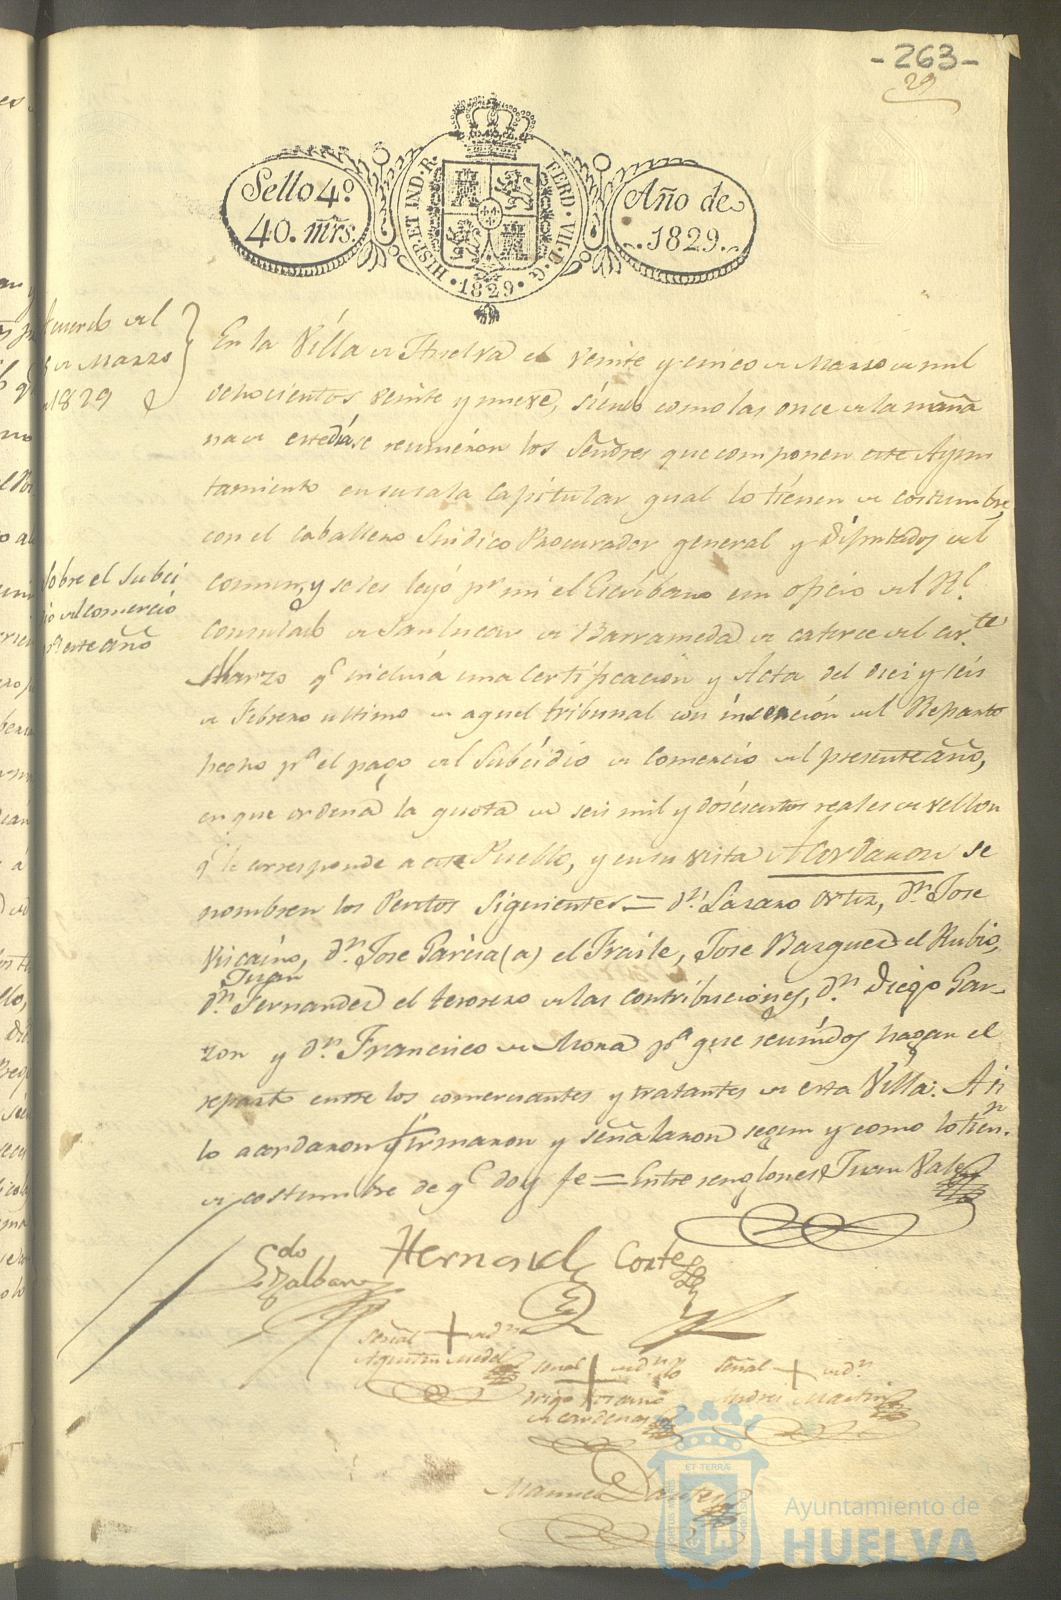 -263-
29
Sello 4º
40. mrs.
HISP. ET IND. R.
FERD. VII. D. G.
1829
Año de
1829.
Acuerdo del
de Marzo
1829
En la Villa de Huelva el veinte y cinco de Marzo de mil
ochocientos veinte y nueve, siendo como las once de la maña
na de este dia se reunieron los Señores que componen este Ayun
tamiento en su sala Capitular, qual lo tienen de costumbre,
con el Caballero Sindico Procurador general y Diputados del
comun, y se les leyó pr. mi el Escribano un oficio del Rl.
Consulado de San Lucar de Barrameda de catorce del corte.
Marzo qe. incluía una Certificacion y Acta del diez y seis
de Febrero ultimo de aquel tribunal con insercion del Reparto
hecho pa. el pago del Subsidio de Comercio del presente año,
en que ordena la quota de seis mil y doscientos reales de vellon
qe. le corresponde a este Pueblo, y en su vista Acordaron se
nombren los Peritos Siguientes = dn. Lazaro Ortiz, dn. Jose
Viscaino, dn. Jose Garcia (a) el Fraile, Jose Bazquez el Rubio,
Juan
dn. Fernandez el tesorero de las contribuciones, dn. Diego Gar-
zon y dn. Francisco de Mora pa. que reunidos hagan el
reparto entre los comerciantes y tratantes de esta Villa: Asi
lo acordaron firmaron y señalaron segun y como lo tienn.
de costumbre de qe. doy fe = Entre renglones Juan Vale
Sobre el Subci
dio del comercio
de este año
Hernand Corte
Señal + de dn.
Agustin
Señal + de dn.
Diego
de Cardenas
Señal + de dn.
Andres Martin
Manuel
ET TERRÆ
Ayuntamiento de
HUELVA